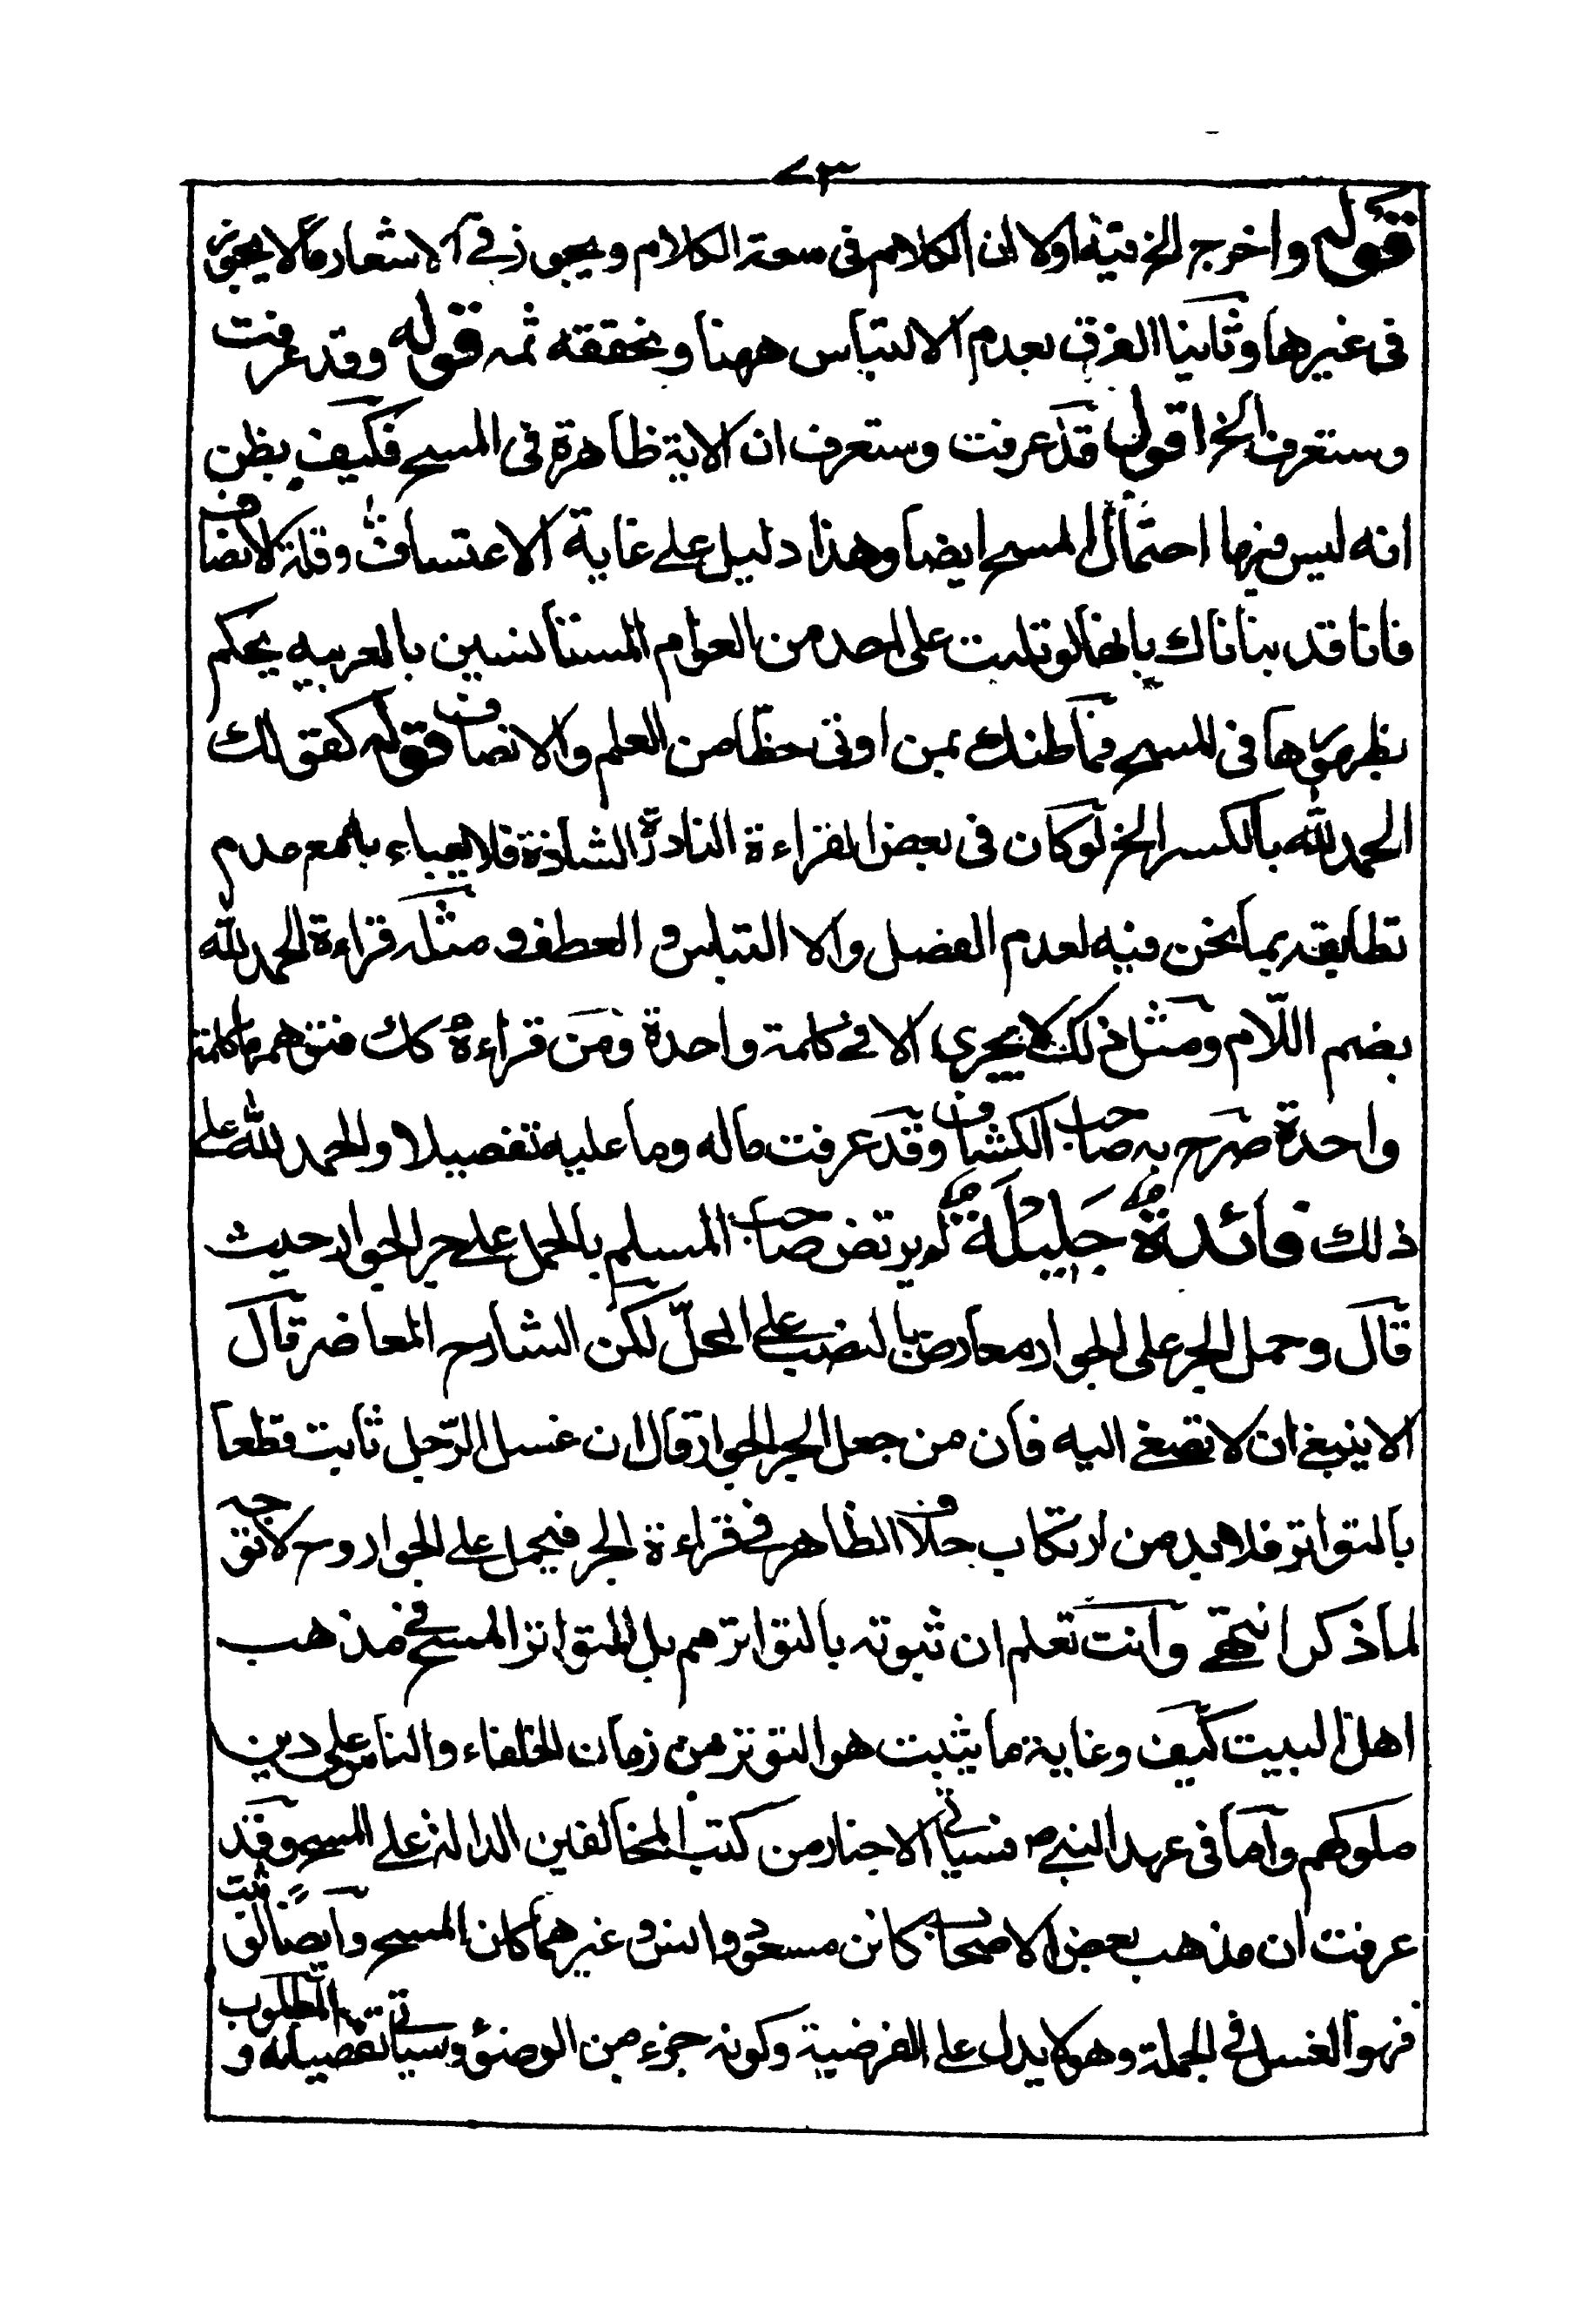 ٧٣
قوله واخرج الخ فتيه اولا ان الكلام فى سعة الكلام ويجوز فے الاشعار مالا يجوز
فى غيرها وثانيا الفرق بعدم الالتباس ههنا وتحققه ثمه قوله وقد عرفت
وستعرف الخ اقول قد عرفت وستعرف ان الاية ظاهرة فى المسح فكيف يظن
انه ليس فيها احتمال المسح ايضا وهذا دليل على غاية الاعتساف وقلة الانصاف
فانا قد بناناك بانها لو تليت على احد من العوام المستانسين بالعربيه يحكم
بظهورها فى المسح فما ظنك بمن اوتى حظا من العلم والانصاف قوله كقولك
الحمد لله بالكسر الخ لو كان فى بعض القراءة النادرة الشاذة فلا يعباء به مع عدم
تطابقه بما نحن فيه لعدم الفصل والا التباس و العطف و مثله قراءة الحمد لله
بضم اللام ومثل ذلك لا يجرى الا فے كلمة واحدة ومن قراءة كك فتوهمهما كلمة
واحدة صرح به صاحب الكشاف وقد عرفت ماله وما عليه تفصيلا والحمد لله على
ذلك فائدة جليلة لم يرتض صاحب المسلم بالحمل على جر الجوار حيث
قال وحمل الجر على الجوار معارض بالنصب على المحل لكن الشارح المعاصر قال
الا ينبغے ان لا تصغے اليه فان من جعل الجر الجوار قال ان غسل الرجل ثابت قطعا
بالتواتر فلا بد من ارتكاب خلاف الظاهر فے قراءة الجر فيحمل على الجوار وح لا توجه
لما ذكر انتهے وانت تعلم ان ثبوته بالتواتر مم بل المتواتر المسح فے مذهب
اهل البيت كيف وغاية ما يثبت هو التوتر من زمان الخلفاء والناس على دين
ملوكهم واما فى عهد النبے ص فسياتے الاخبار من كتب المخالفين الدالة على المسح وقد
عرفت ان مذهب بعض الاصحاب كابن مسعود وانس وغيرهما كان المسح وايضا لو ثبت
فهو الغسل فے الجملة وهو لا يدل على الفرضية وكونه جزء من الوضوء وسياتے تفصيله و المطلوب